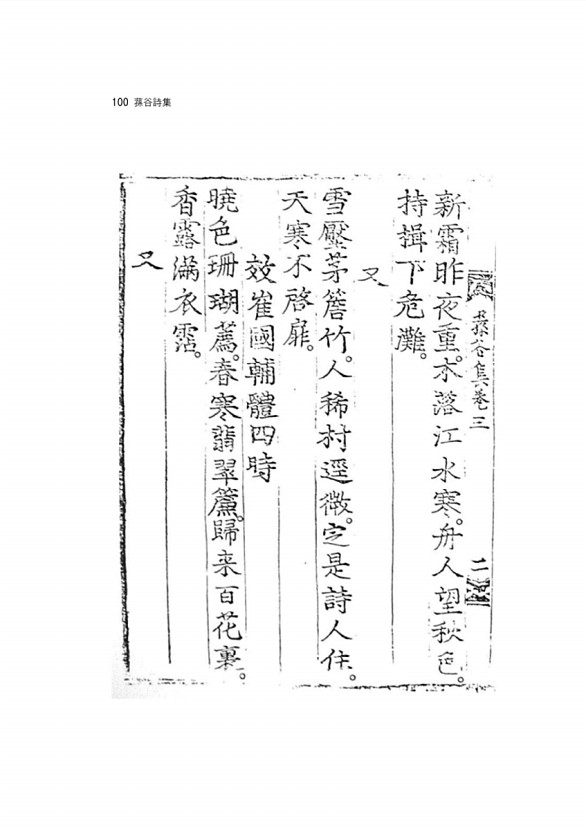 100 蓀谷詩集
蓀谷集卷三
二
新霜昨夜重。木落江水寒。舟人望秋色。
持揖下危灘。
又
雪壓茅簷竹。人稀村逕微。定是詩人住。
天寒不啓扉。
效崔國輔體四時
曉色珊瑚薦。春寒翡翠簾。歸来百花裏。
香露滿衣霑。
又